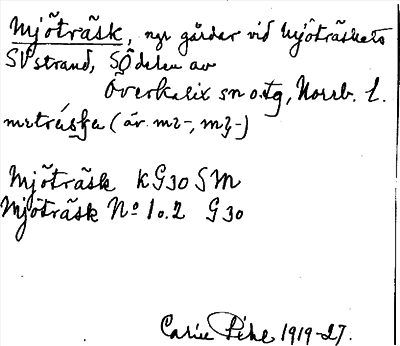 Mjöträsk, nge gårdar vid Mjöträskets
SV strand, SÖdelen av
Överkalix sn o. tg, Norrb. l.
metráska (äv. mr-, mz-)
Mjöträsk KG30 SM
Mjöträsk No 1 o. 2 G30
Carin Pihl 1919-27.